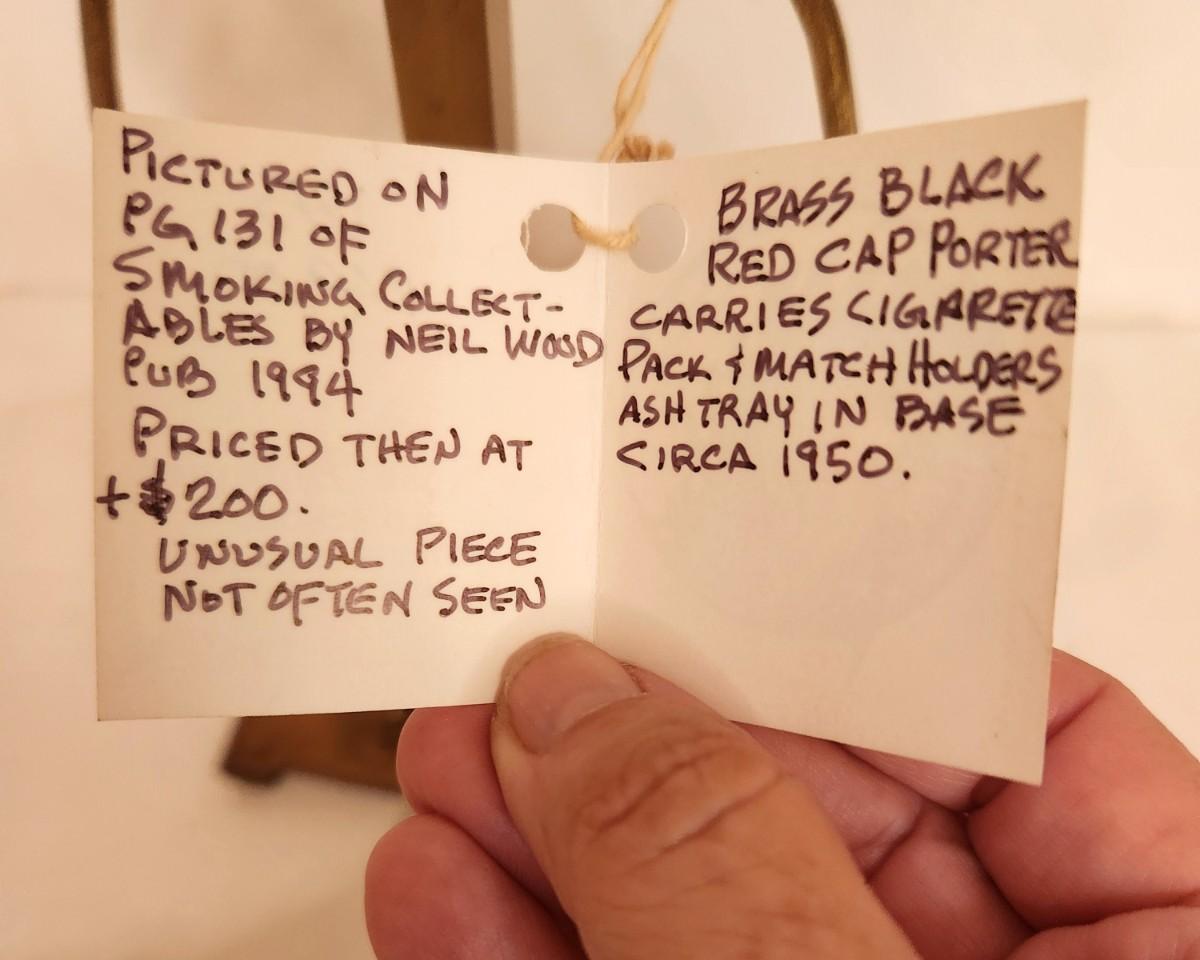 PICTURED ON
PG 131 OF
SMOKING COLLECT-
ABLES BY NEIL WOOD
PUB 1994
PRICED THEN AT
+$200.
UNUSUAL PIECE
NOT OFTEN SEEN
BRASS BLACK
RED CAP PORTER
CARRIES CIGARETTE
PACK & MATCH HOLDERS
ASH TRAY IN BASE
CIRCA 1950.